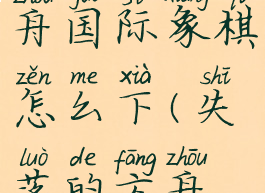 舟国际象棋
zěn me xià shī
怎么下(失
luò de fāng zhōu
落的方舟